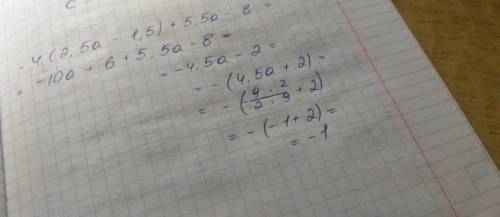 c =
- 4(2,5a - 1,5) + 5,5a - 8 =
= -10a + 6 + 5,5a - 8 =
= -4,5a - 2 =
= -(4,5a + 2) =
= -(9 · 2 / 2 · 9 + 2)
= -(-1 + 2) =
= -1